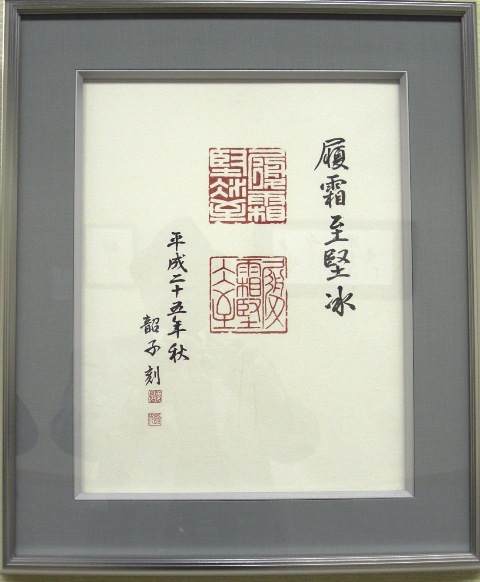 履霜至堅冰
履霜堅冰至
履霜堅冰至
平成二十五年秋
韶子刻